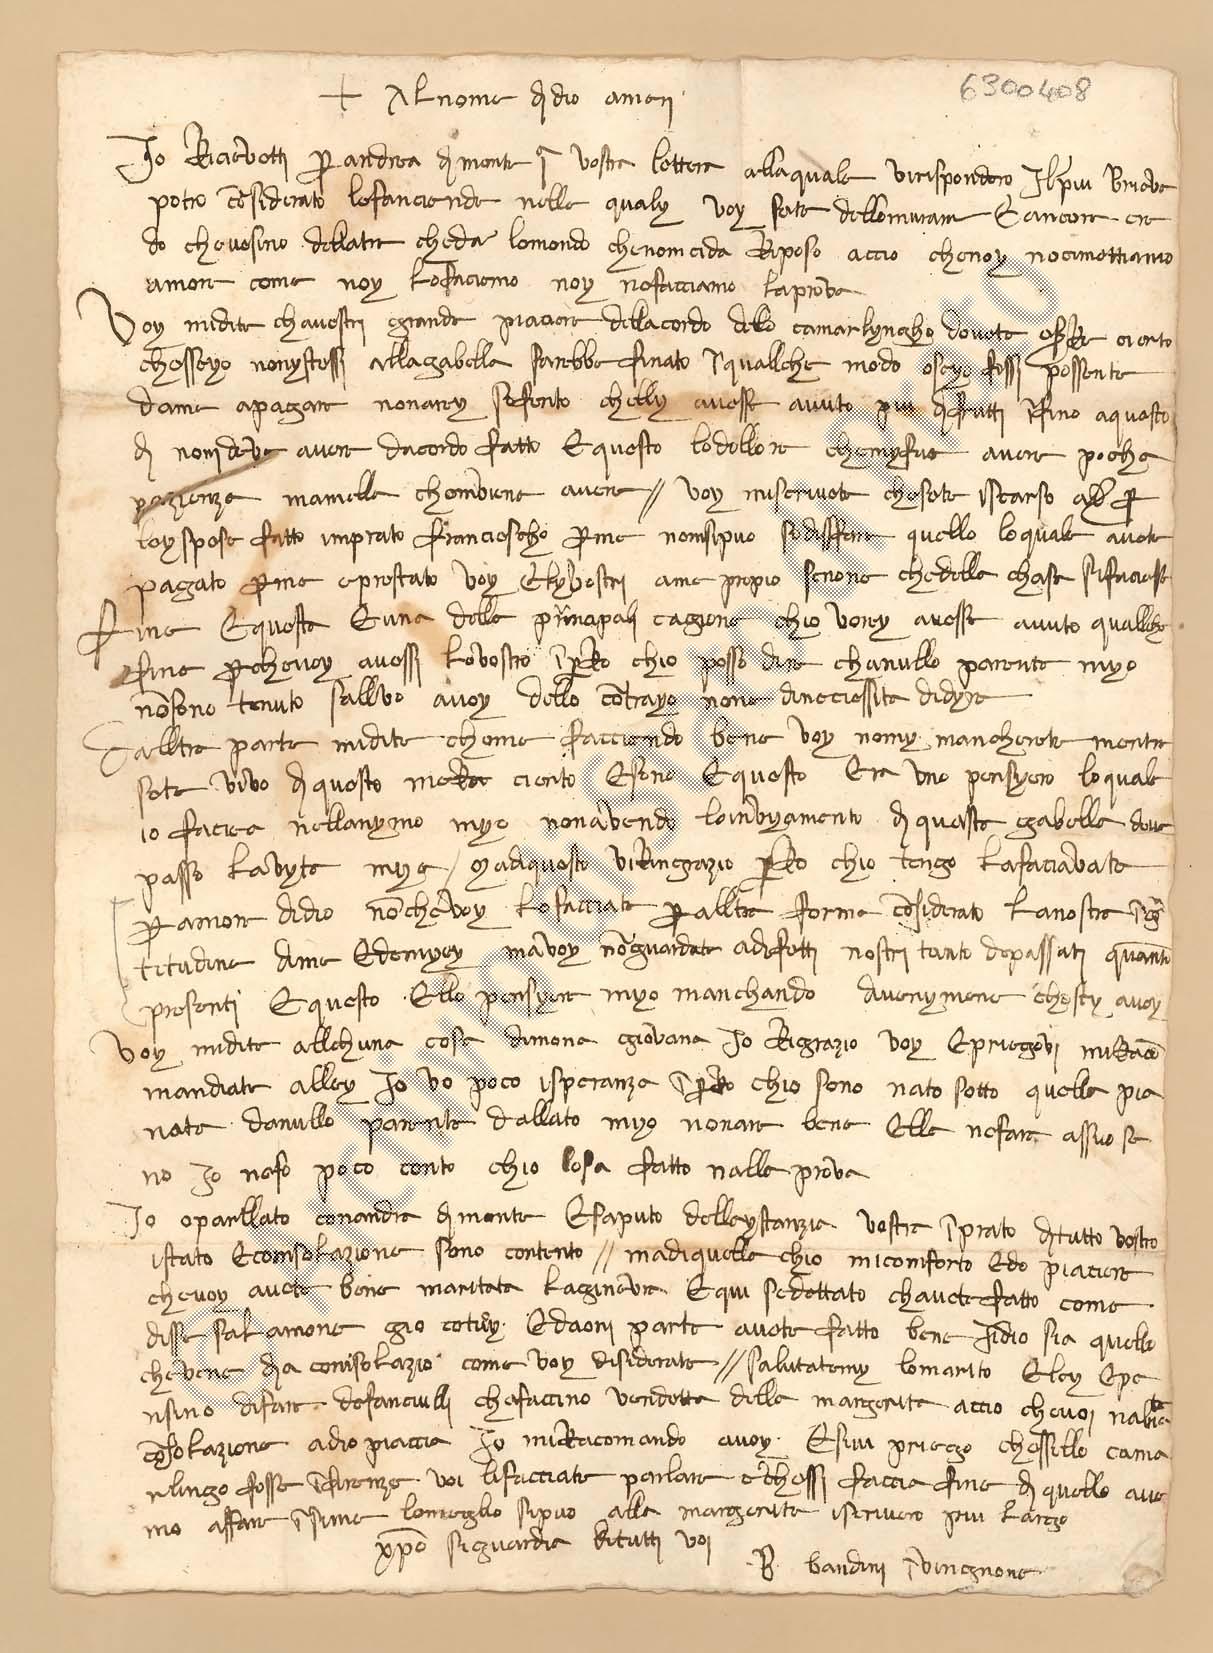 + Al nome di dio amen
6300408
Io Ricievetti per andrea di monte j vostra lettera alla quale virispondero Ilpiu brieve
potro considerato lefaciende nelle qualy voy sete dellomurare E ancora cre
do chevesino dellatre cheda lomondo chenoncida Riposo accio chenoy nocimettiamo
amore come noy lofaciemo noy nefacciamo laprova
Voy midite chavostri grande piaciere dellacordo delo camarlyngho dovete essere cierto
chesseyo nonystessi allagabella sarebbe finato in quallche modo oseyo fossi possente
dame apagare nonarey soferto chelly avesse avuto piu di frutti infino aquesto
di nonideve avere dacordo fatto E questo lodollore chemyfae avere pocha
pazienza mamella chemviene avere // voy miscrivete chesete iscarso
leyspese fatto imprato francescho perme nonsipuo sodisfare quello loquale avete
pagato perme eprestato voy Elyvostri ame propio senone chedelle chase sifaciesse
fine Equesta Euna delle principali cagione chio vorey avesse avuto quallche
fine perchevoy avessi lovostro inpero chio posso dire chanullo parente myo
nonsono tenuto sallvo avoy dello contrayo none dineciessita didyre
Dalltra parte midite cheme facciendo bene voy nomy mancherete mentre
sete vivo di questo me ciento Esono Equesto Era uno pensyero loquale
io faciea nellanymo myo nonavendo loinvyamento di questa gabella dove
passo lavyta mya / Madiquesto viRingrazio pero chio tengo lafaciavate
per amore didio nonchevoy lofacciate peralltra forma considerato lanostra ingra
titudine dime Edemyey mavoy nonguardate adifetti nostri tanto depassati quanto
presenti Equesto Ello pensyere myo manchando avenymene chesty avoy
Voy midite allchuna cosa dimona giovana Io Rigrazio voy Epriegovi miRaco
mandiate alley Io vo poco isperanza inpero chio sono nato sotto quella pia
nata danullo parente dallato myo nonare bene Ella nefara assuo se
no Io nefo poco conto chio losa fatto nalla prova
Io oparllato conandrea di monte Esaputo dellaystanzia vostra inprato ditutto vostro
istato Econsolazione sono contento // madiquella chio miconforto Edo piaciere
chevoy avete bene maritata laginevra Equi sedettato chavete fatto come
disse salamone gio cotivy Edaoni parte avete fatto bene Idio sia quello
chevene dia consolazio come voy disiderate // salutatemy lomarito Eley Epe
nsino difare defanciulli chefaccino vendetta della margerita accio chevoi nabiate
consolazione adio piaccia Io miRacomando avoy Esivi priego chessello cama
rlingo fosse infirenze voi lifacciate parlare echessi faccia fine di quello ave
mo affare insime lomeglio sipuo alla margerita iscrivero piu largo
xpo siguardia ditutti voi
B bandini invingnone